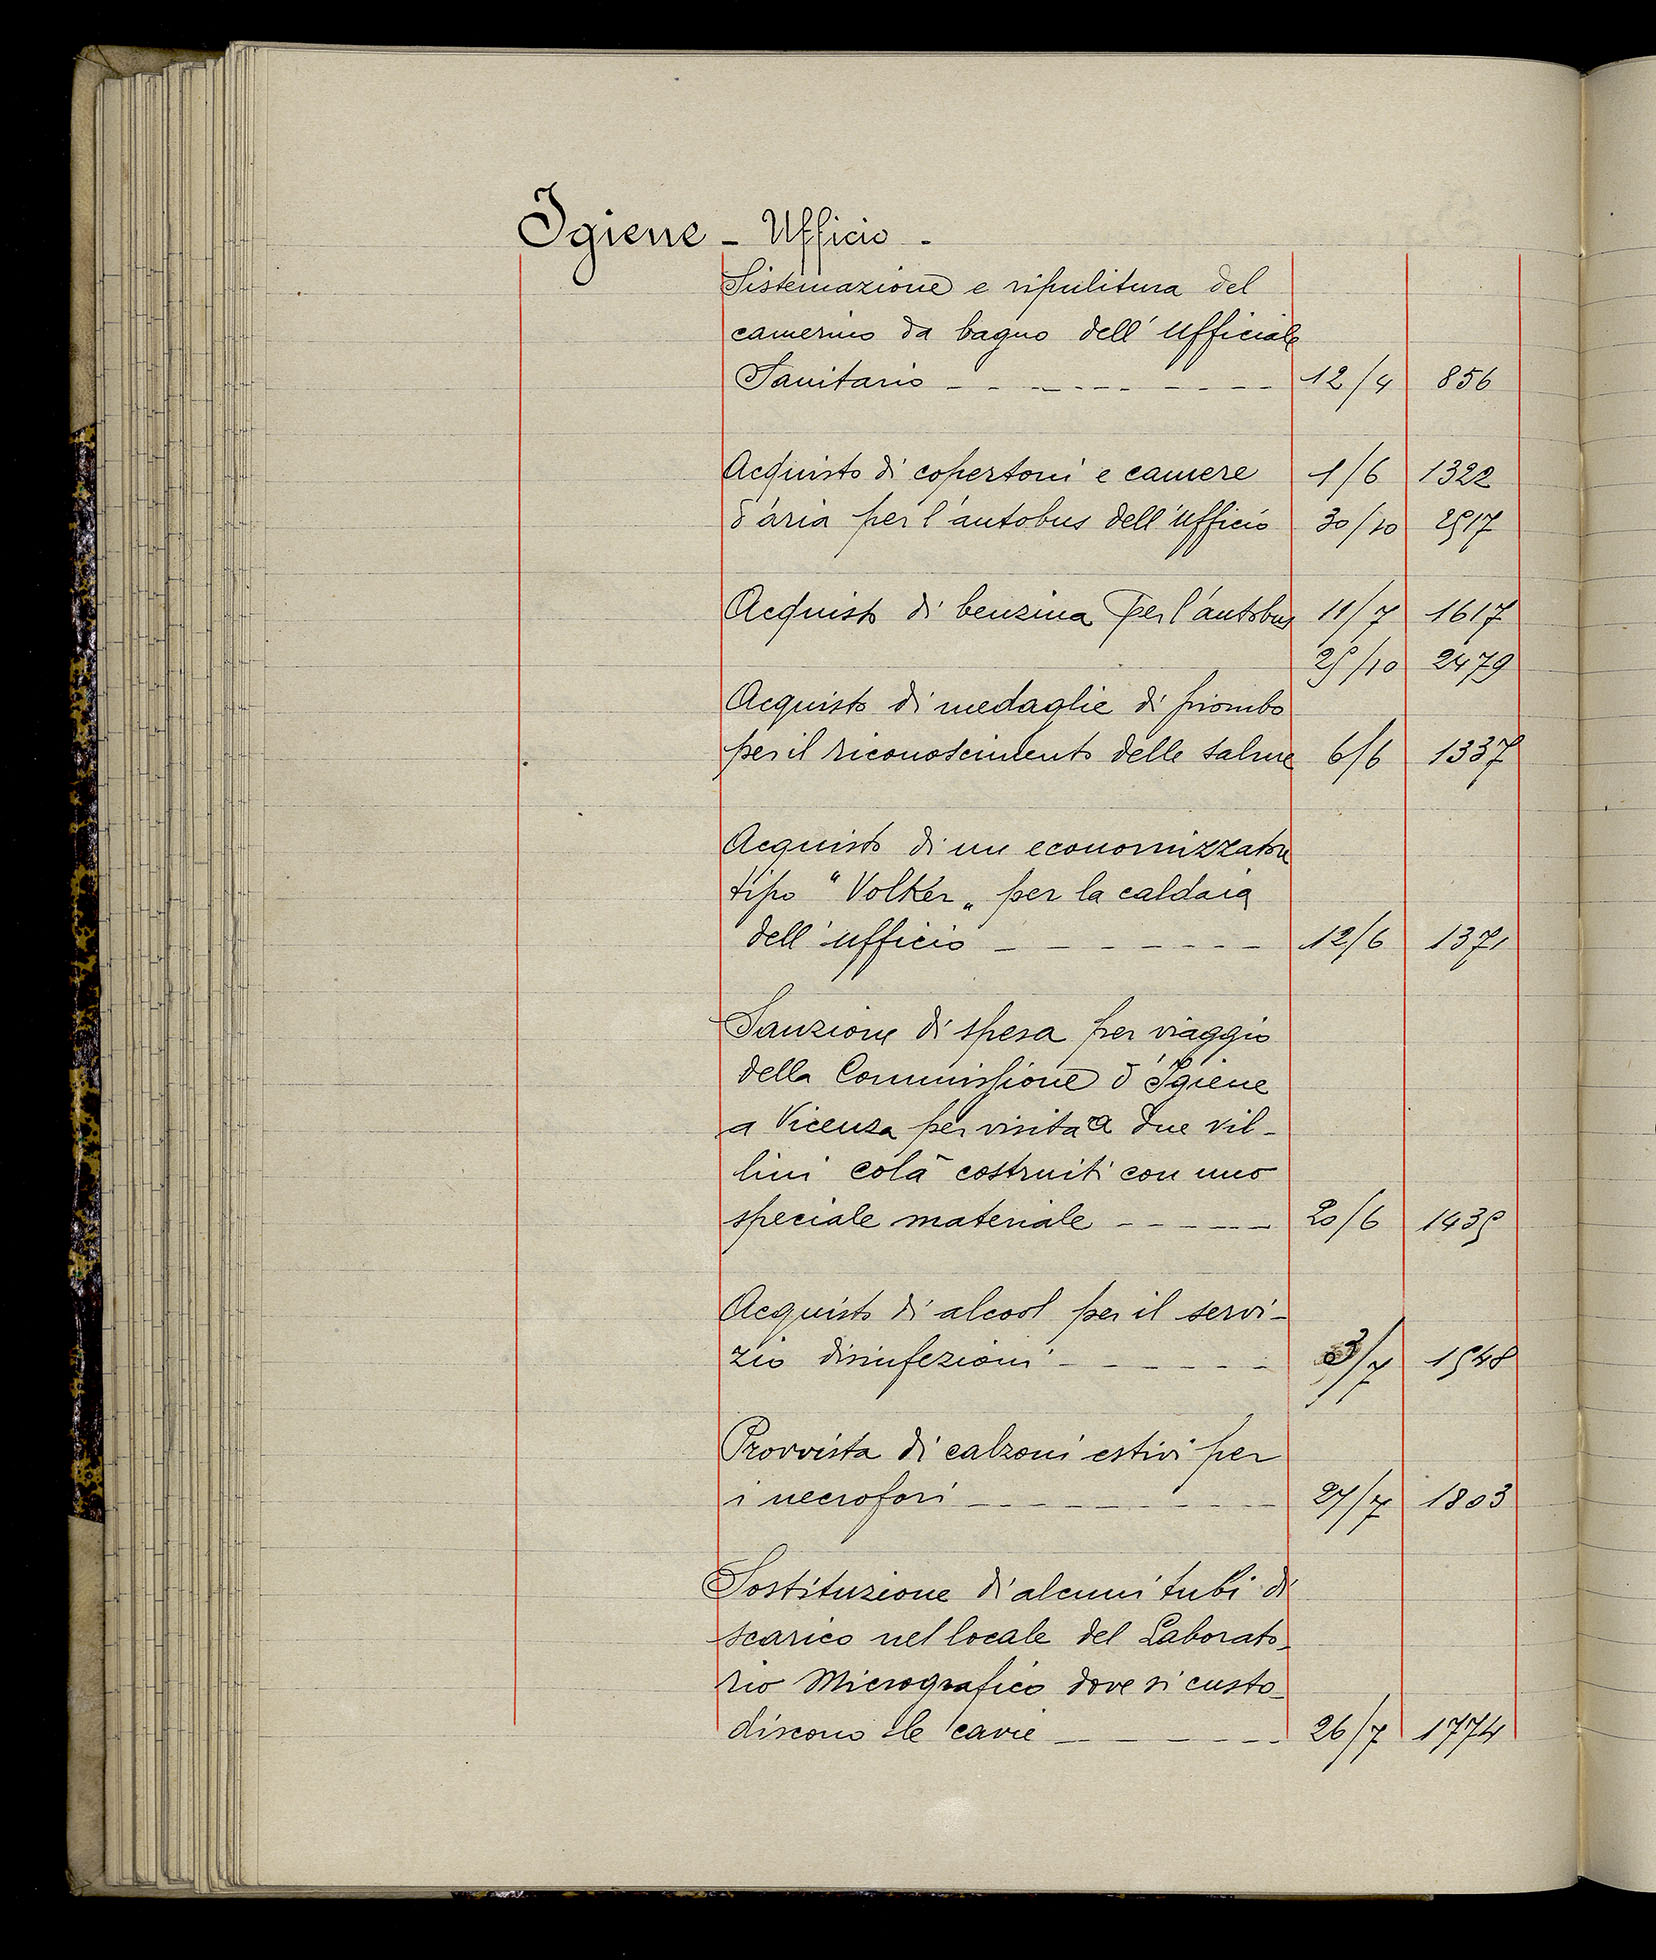 Igiene - Ufficio -
Sistemazione e ripulitura del
camerino da bagno dell'Ufficiale
Sanitario - - - - - - - - 12/4 856
Acquisto di copertoni e camere 1/6 1322
d'aria per l'autobus dell'Ufficio 30/10 2517
Acquisto di benzina per l'autobus 11/7 1617
25/10 2479
Acquisto di medaglie di piombo
per il riconoscimento delle salme 6/6 1337
Acquisto di un economizzatore
tipo "Volker„ per la caldaia
dell'ufficio - - - - - - - 12/6 1371
Sanzione di spesa per viaggio
della Commissione d'Igiene
a Vicenza per visita a due vil-
lini colà costruiti con uno
speciale materiale - - - - - 20/6 1435
Acquisto di alcool per il servi-
zio disinfezioni - - - - - - 3/7 1548
Provvista di calzoni estivi per
i necrofori - - - - - - - - 27/7 1803
Sostituzione di alcuni tubi di
scarico nel locale del Laborato-
rio Micrografico dove si custo-
discono le cavie - - - - - - 26/7 1774